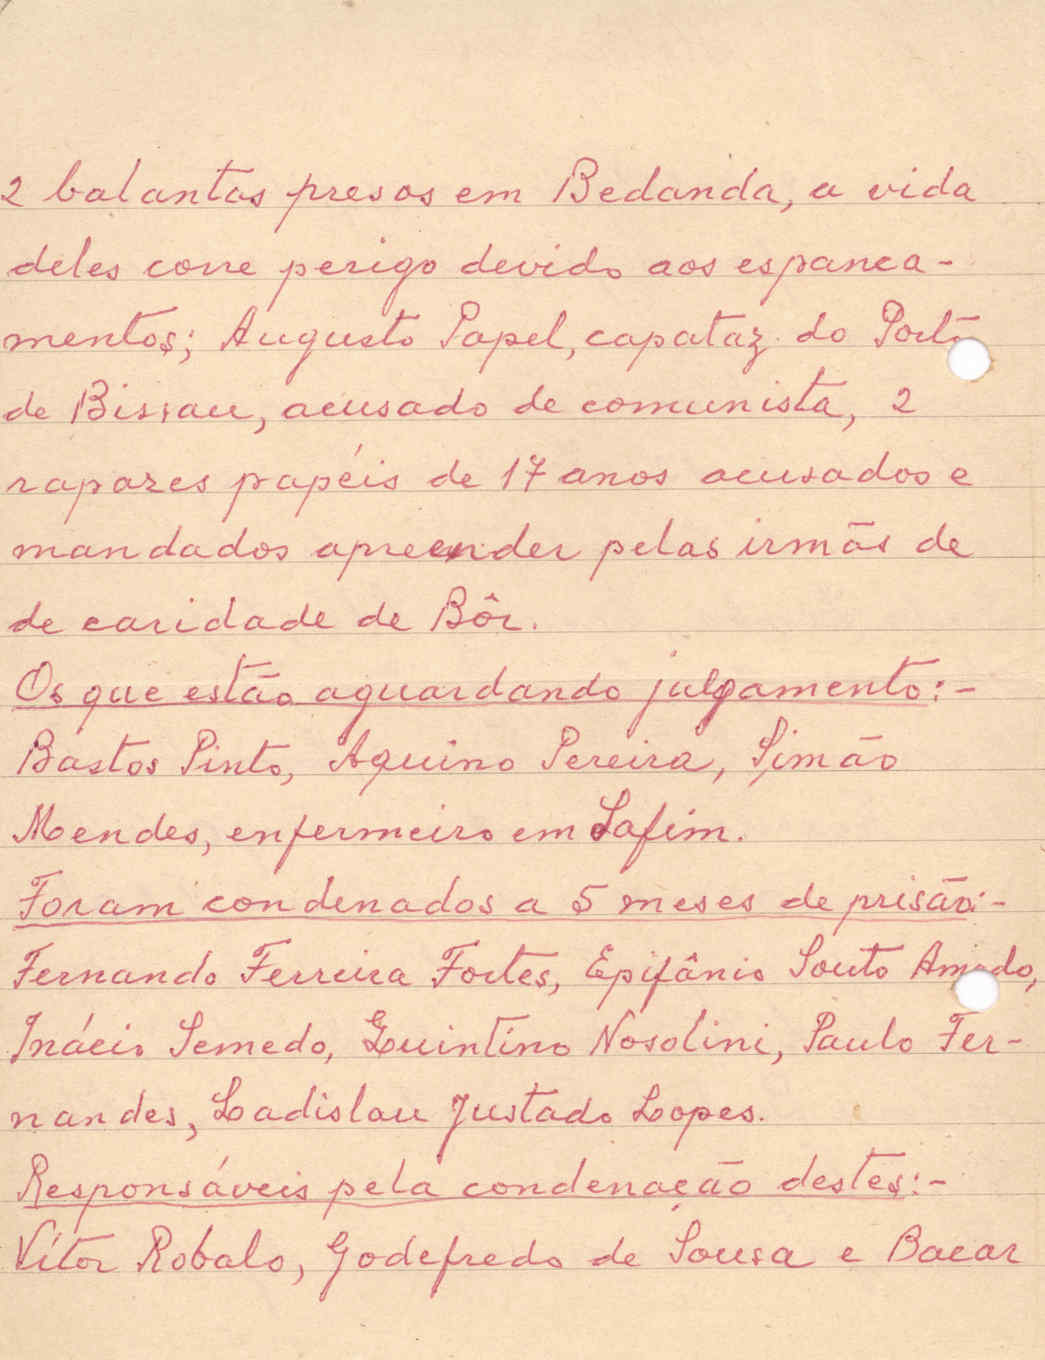 2 balantas presos em Bedanda, a vida
deles corre perigo devido aos espanca-
mentos; Augusto Papel, capataz do Porto
de Bissau, acusado de comunista, 2
rapazes papéis de 17 anos acusados e
mandados apreender pelas irmãs de
de caridade de Bôr.
Os que estão aguardando julgamento:-
Bastos Pinto, Aquino Pereira, Simão
Mendes, enfermeiro em Safim.
Foram condenados a 5 meses de prisão:-
Fernando Ferreira Fortes, Epifânio Souto Amado,
Inácio Semedo, Quintino Nosolini, Paulo Fer-
nandes, Ladislau Justado Lopes.
Responsáveis pela condenação destes:-
Vítor Robalo, Godefredo de Sousa e Bacar